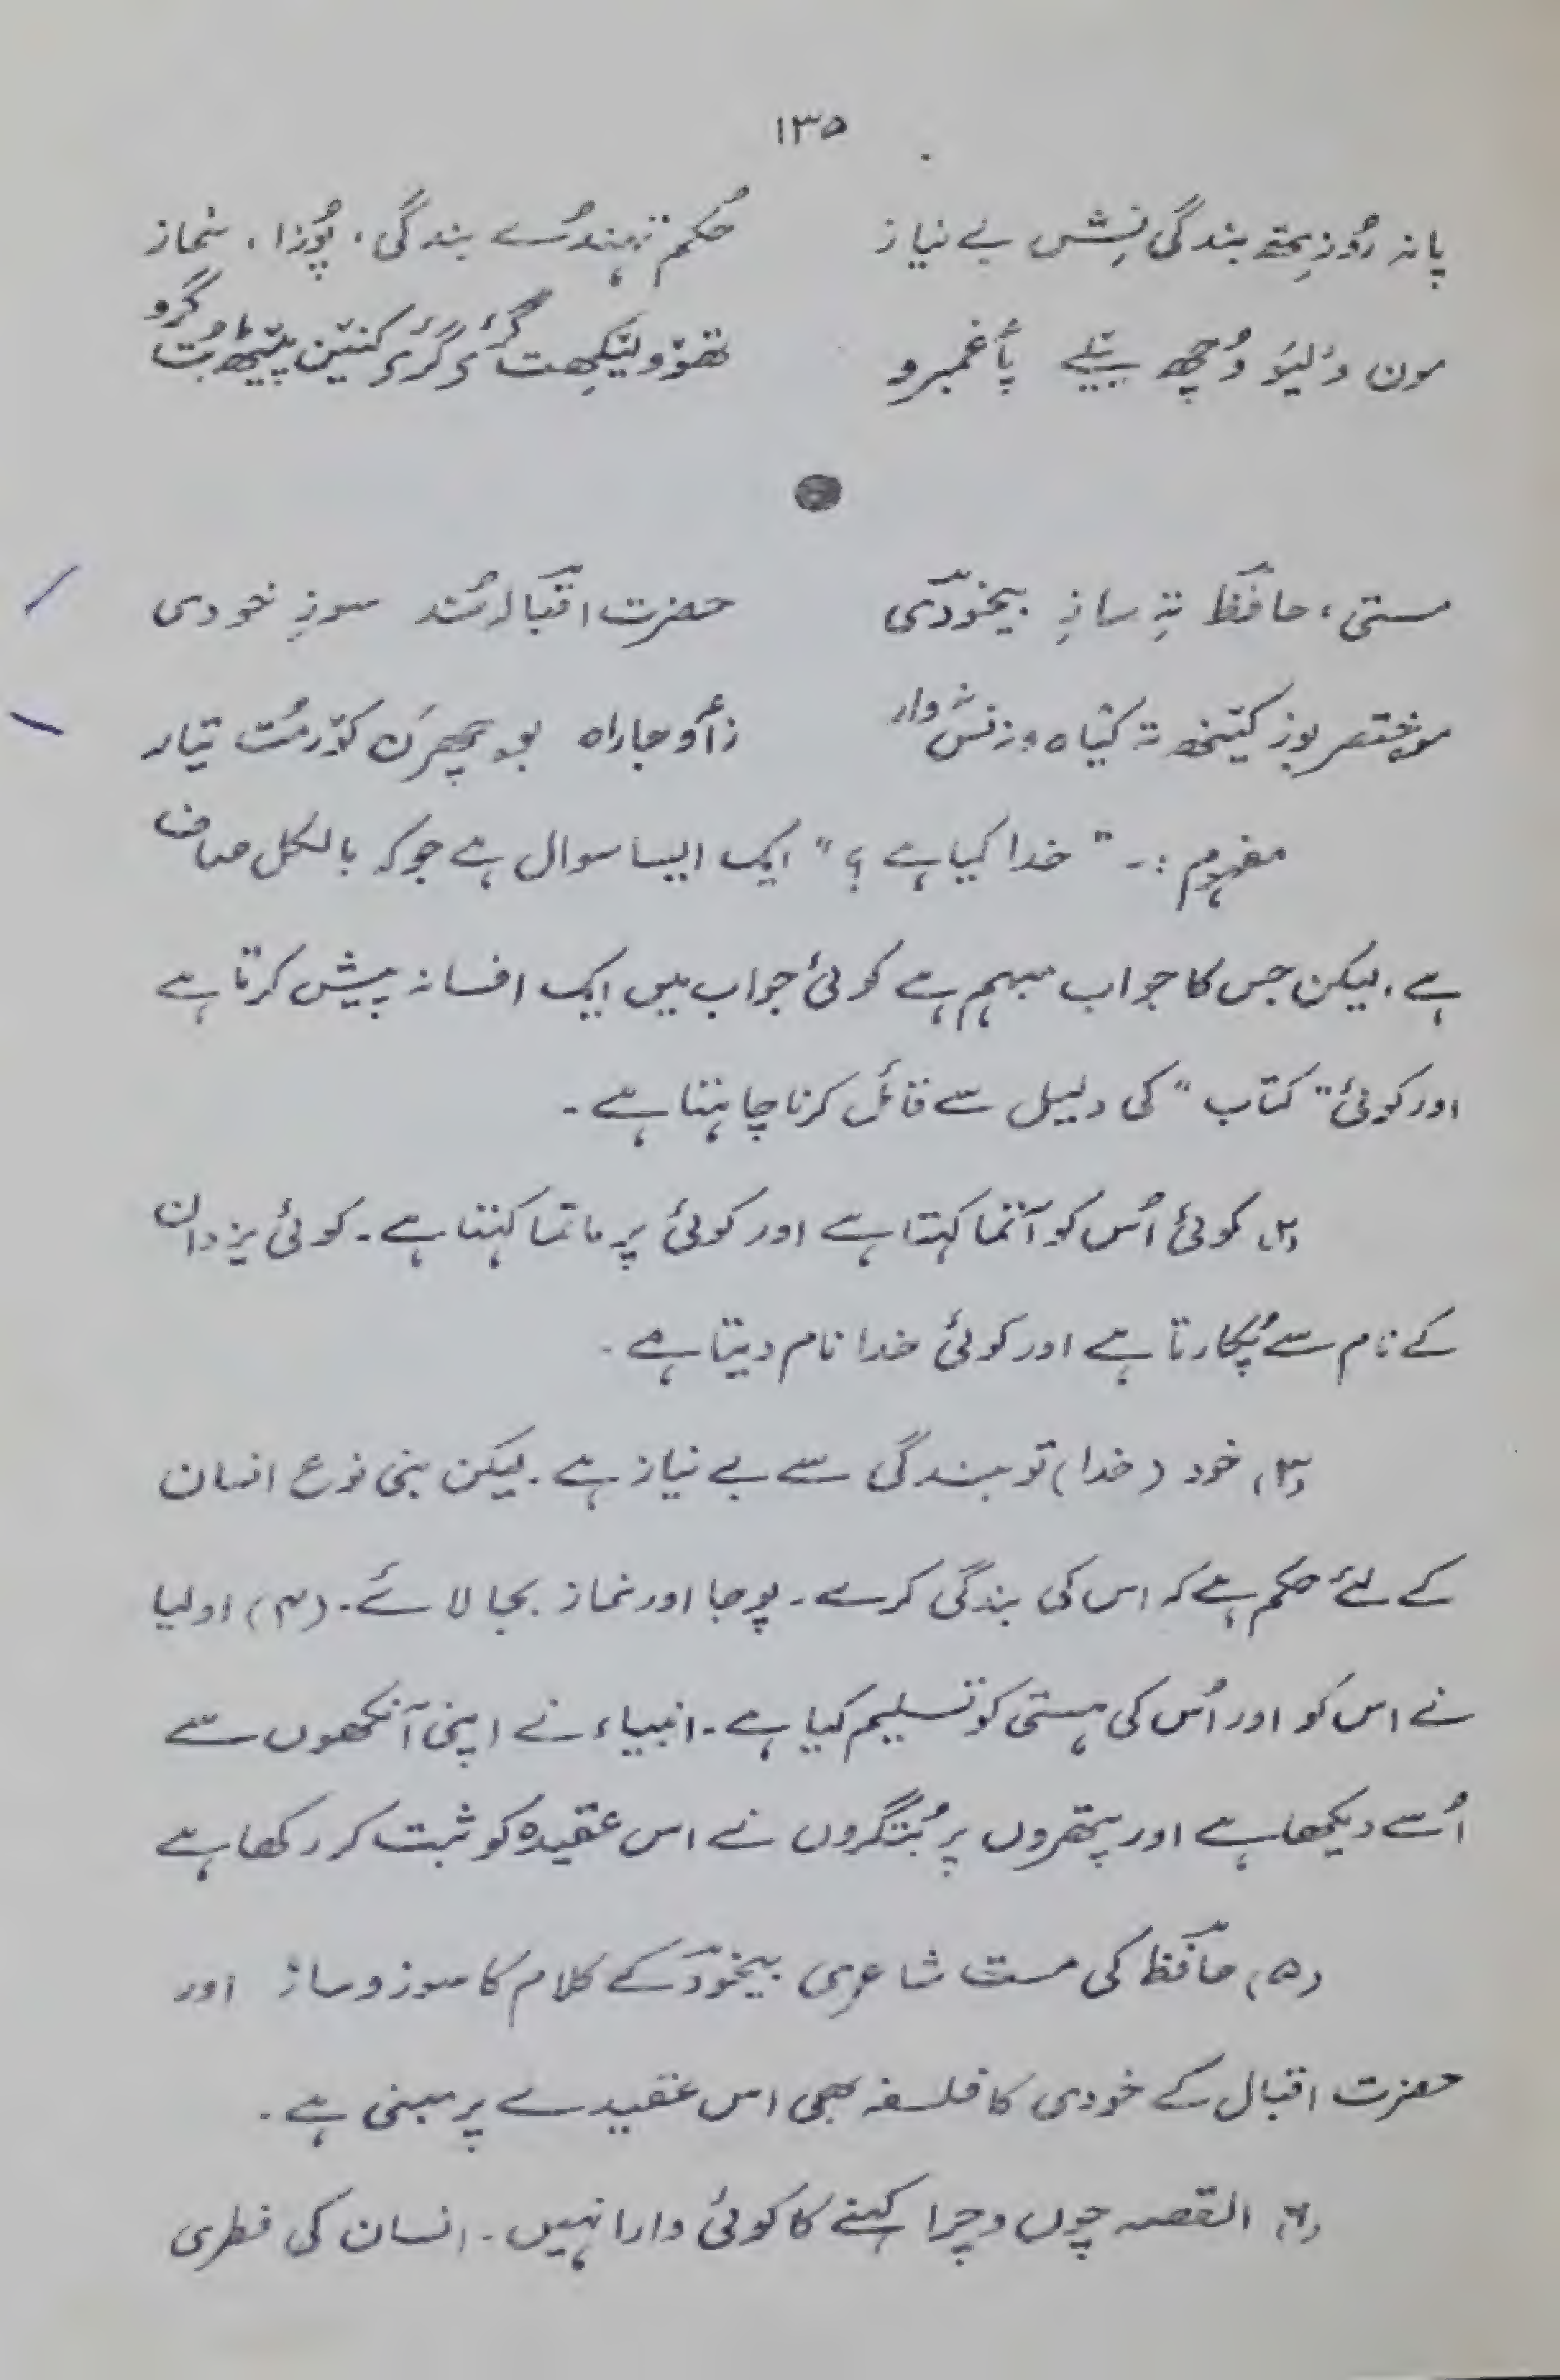 ۱۳۵
پانہ رُوزِتھ بندگی نِشہِ بے نیاز حُکم تہندُے بندگی، پُوزا، نماز
مون وَلیَو وُچھ پَیغمبرو
حضرت اقبالُند سوزِ خودی مستی، حافظؔ تہِ سازِ بیخودؔی
موختصر بوز کینْہہ تہ کیاہ ونزنس وار
مفہوم :۔ ”خدا کیا ہے؟“ ایک ایسا سوال ہے جو کہ بالکل صاف
ہے، لیکن جس کا جواب مبہم ہے کوئی جواب میں ایک افسانہ پیش کرتا ہے
اور کوئی ”کتاب“ کی دلیل سے قائل کرنا چاہتا ہے۔
(۲) کوئی اُس کو آتما کہتا ہے اور کوئی پرماتما کہتا ہے۔ کوئی یزدان
کے نام سے پُکارتا ہے اور کوئی خدا نام دیتا ہے۔
(۳) خود (خدا) تو بندگی سے بے نیاز ہے۔ لیکن بنی نوع انسان
کے لئے حکم ہے کہ اس کی بندگی کرے۔ پوجا اور نماز بجا لائے۔ (۴) اولیا
نے اس کو اور اُس کی ہستی کو تسلیم کیا ہے۔ انبیاء نے اپنی آنکھوں سے
اُسے دیکھا ہے اور پتھروں پر بُتگروں نے اس عقیدہ کو ثبت کر رکھا ہے
(۵) حافظؔ کی مست شاعری بیخودؔ کے کلام کا سوز و ساز اور
حضرت اقبال کے خودی کا فلسفہ بھی اس عقیدے پر مبنی ہے۔
(۶) القصہ چوں و چرا کہنے کا کوئی وارا نہیں۔ انسان کی فطری